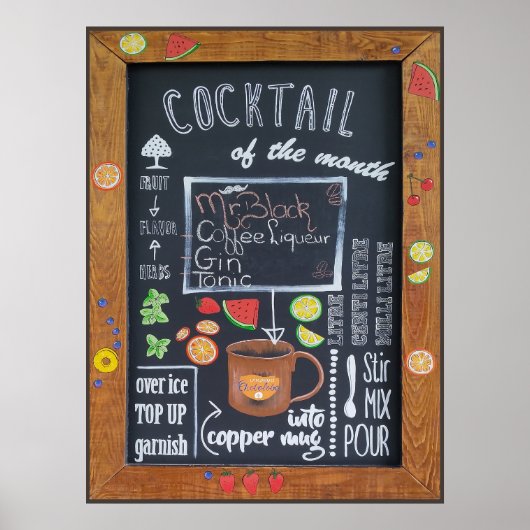 COCKTAIL
of the month
FRUIT
FLAVOR
HERBS
Mr Black
Coffee Liqueur
Gin
Tonic
LITRE
CENTI LITRE
MILLI LITRE
over ice
TOP UP
garnish
into
copper mug
Stir
MIX
POUR